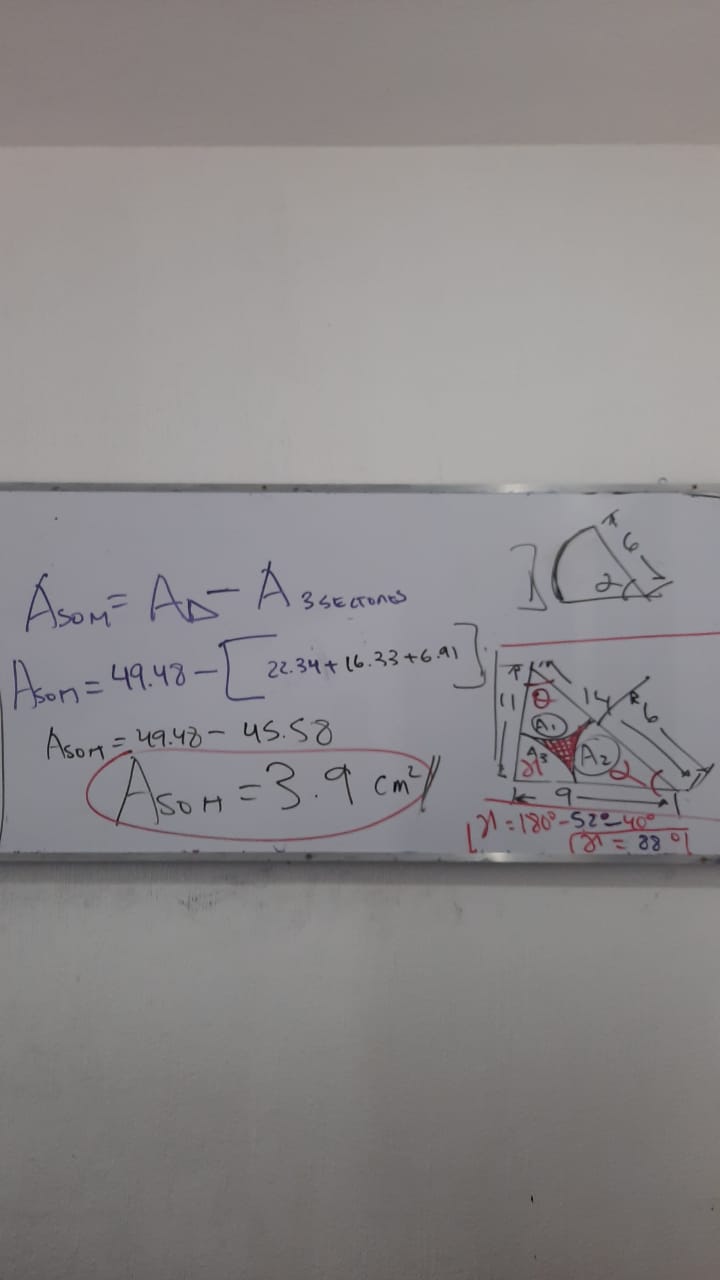 ASOM = A△ - A 3 SECTORES
ASOM = 49.48 - [22.34+16.33+6.91]
ASOM = 49.48 - 45.58
ASOM = 3.9 cm²
6
α
11
θ
14
R
6
A1
A3
A2
γ
α
9
γ = 180° - 52° - 40°
γ = 88°